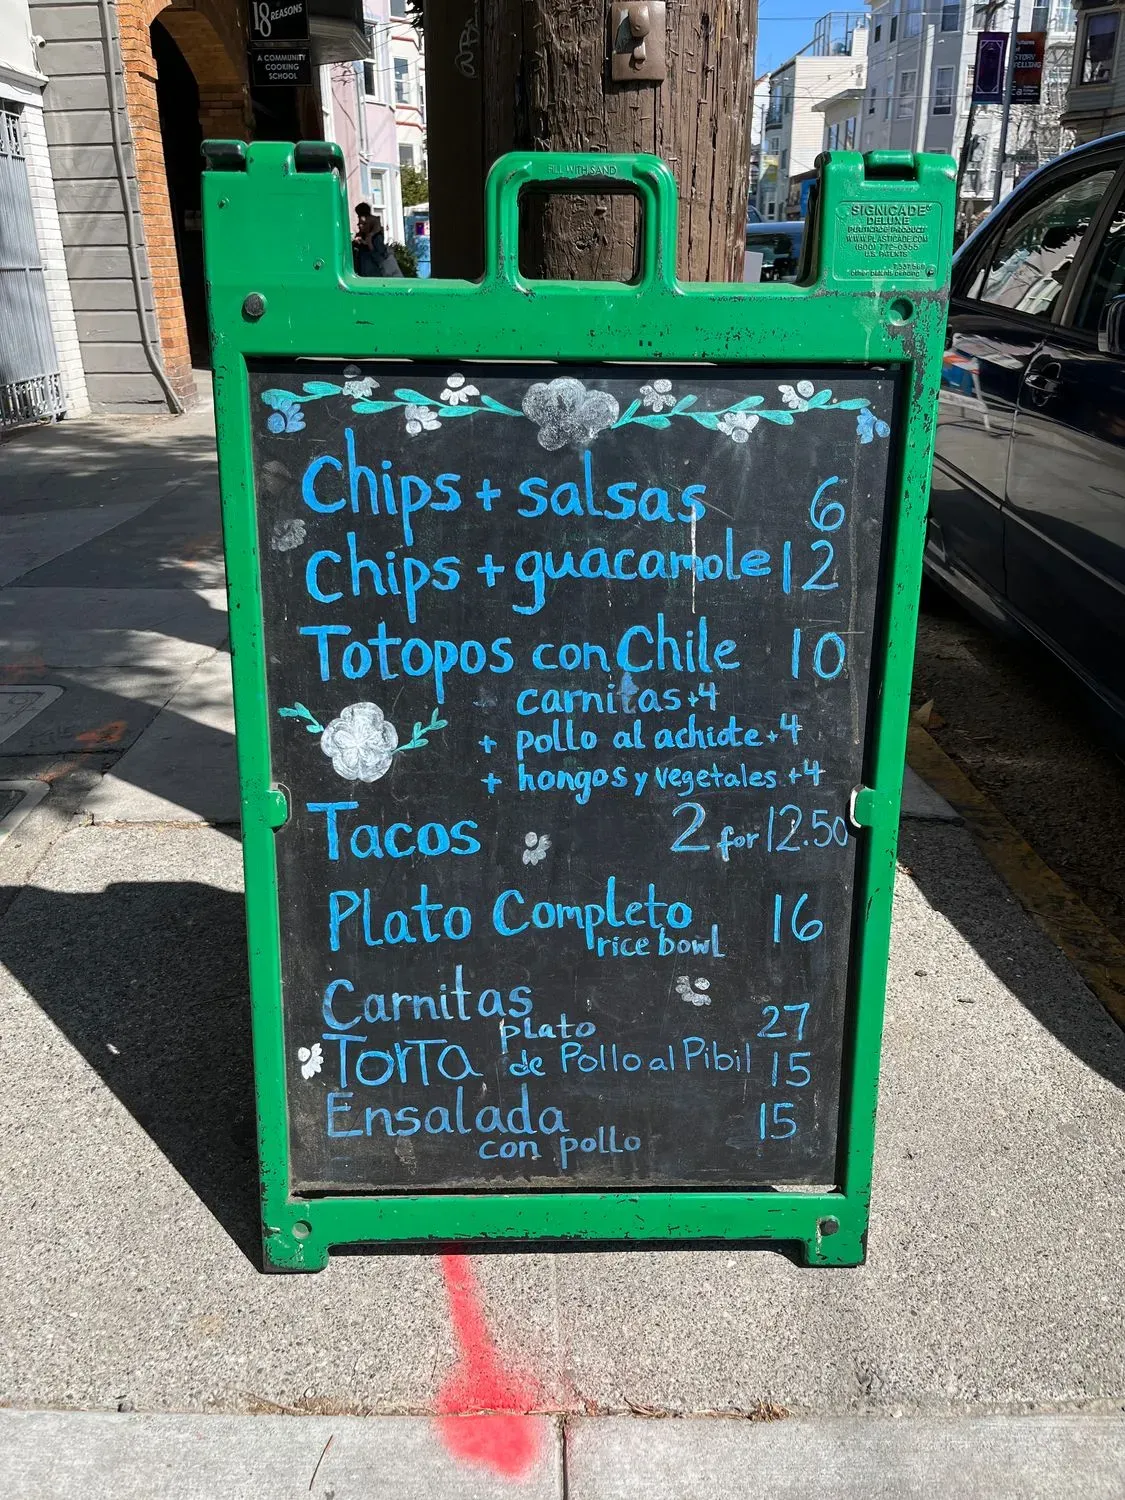 18 REASONS
A COMMUNITY
COOKING
SCHOOL
FILL WITH SAND
SIGNICADE
DELUXE
PLASTICADE PRODUCT
WWW.PLASTICADE.COM
(800) 772-0355
U.S. PATENTS
other patents pending
STORY
TELLING
Chips + salsas 6
Chips + guacamole 12
Totopos con Chile 10
carnitas +4
+ pollo al achiote +4
+ hongos y vegetales +4
Tacos 2 for 12.50
Plato Completo 16
rice bowl
Carnitas 27
plato
TorTa de Pollo al Pibil 15
Ensalada 15
con pollo